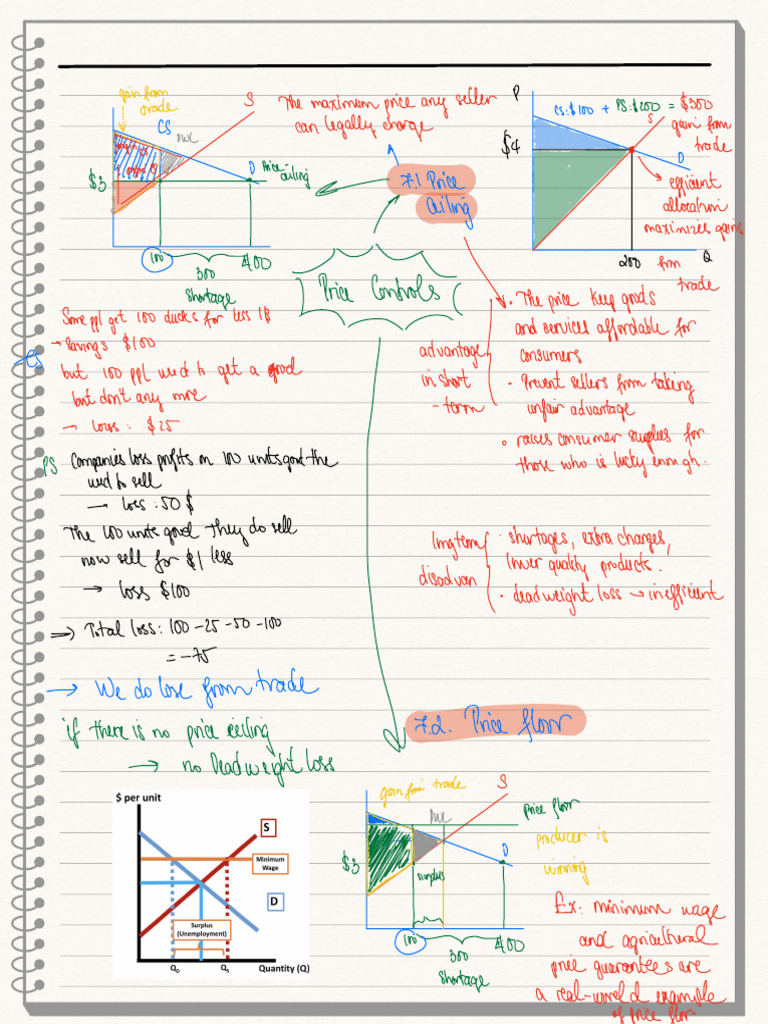 gain from
trade
CS
S
DWL
$3
D
Price
ceiling
100
400
300
shortage
The maximum price any seller
can legally charge
7.1 Price
Ceiling
P
CS:$100 + PS:$200 = $300
gain from
trade
S
$4
D
efficient
allocation
maximizes gains
from
trade
200
Q
Price Controls
Some ppl get 100 ducks for less 1$
→ savings $100
CS
but 100 ppl used to get a good
but don't any more
→ loss: $25
PS
Companies loss profits on 100 units good the
used to sell
→ loss: 50 $
The 100 units good They do sell
now sell for $1 less
→ loss $100
=> Total loss: 100 - 25 - 50 - 100
= -75
→ We do lose from trade
if there is no price ceiling
→ no Deadweight loss
advantage
in short
-term
• The price keep goods
and services affordable for
consumers
• Prevent sellers from taking
unfair advantage
• raises consumer surplus for
those who is lucky enough.
long term
disadvan
• shortages, extra charges,
lower quality products.
• deadweight loss → inefficient
7.2. Price floor
$ per unit
S
Minimum
Wage
D
Surplus
(Unemployment)
QD
QS
Quantity (Q)
gain from trade
S
DWL
price floor
producer is
winning
$3
D
surplus
100
400
300
shortage
Ex: minimum wage
and agricultural
price guarantees are
a real-world example
of price floor